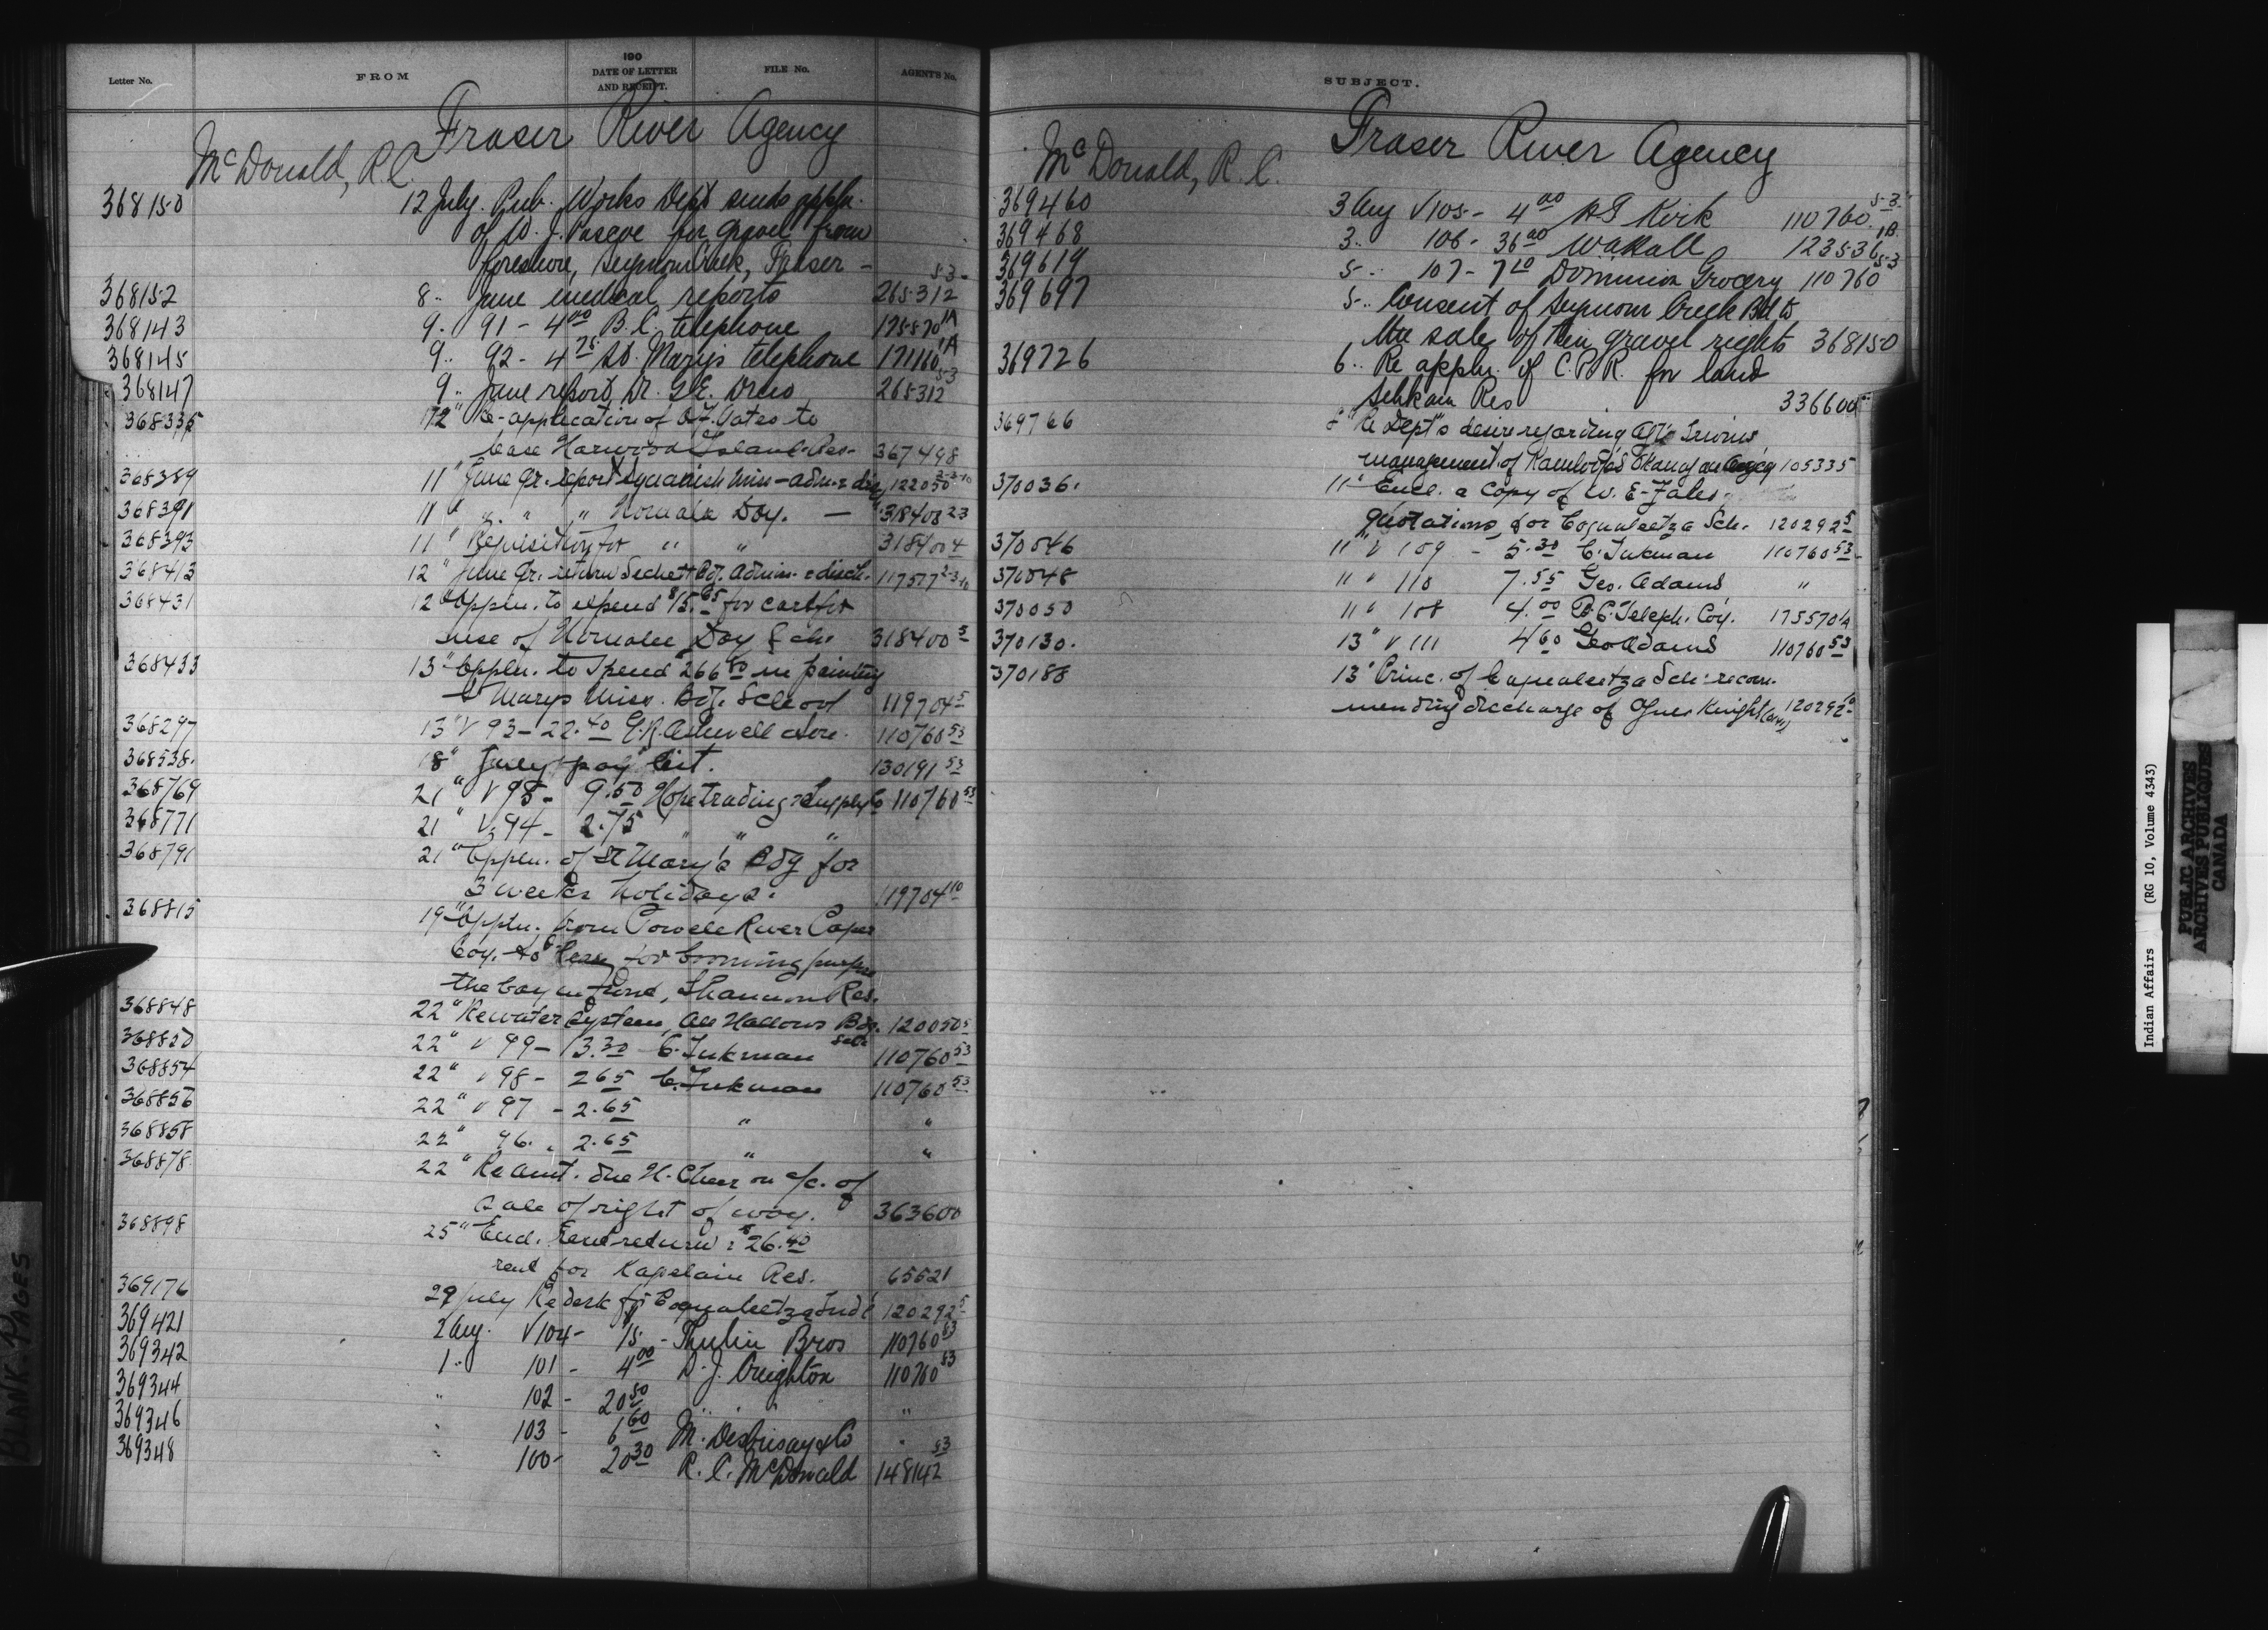 Letter No. FROM 190 DATE OF LETTER AND RECEIPT. FILE No. AGENT'S No.
Fraser River Agency
McDonald, R.C.
368150 12 July. Pub. Works Dept sends appln.
of W. J. for gravel from
foreshore, Seymour Creek, Fraser - 53-
368152 8 " June medical reports 265312
368143 9 " 91 - 4 00 B.C. telephone 175570 1A
368145 9 " 92 - 4 75 St. Mary's telephone 171160 1A
368147 9 " June report, Dr. G.E. Drew 265312 53
368335 12 " Re-application of O.F. Yates to
lease Harwood Island Res- 367498
368389 11 " June Qr. report Squamish Miss - adm. & disc. 122050 2-3-10
368391 11 " " " " Homalco Day. - 318400 23
368393 11 " Requisition for " " 318400 4
368413 12 " June Qr. return Sechelt Bdg. Admis. & disch. 117577 2-3-10
368431 12 " Appln. to expend $15.65 for
use of Homalco Day Sch. 318400 5
368433 13 " Appln. to spend $266.80 in painting
St Marys Miss. Bdg. School 119704 5
368297 13 " V 93 - 22.40 G.R. Ashwell & Son. 110760 53
368538. 18 " July pay list. 130191 53
368769 21 " V 95 - 9.50 Hope Trading & Supply Co 110760 53
368771 21 " V 94 - 2.75 " " "
368791 21 " Appln. of St Mary's Bdg for
3 weeks holidays. 119704 10
368815 19 " Appln. from Powell River Paper
Coy. to lease for booming purpose
the bay in Res.
368848 22 " Re water system, All Hallows Bdg. Sch. 120050 5
368850 22 " V 99 - 13.30 C. Inkman 110760 53
368854 22 " V 98 - 2.65 C. Inkman 110760 53
368856 22 " V 97 - 2.65 " "
368858 22 " 96. " 2.65 " "
368878 22 " Re amt. due H. Cheer on a/c. of
sale of right of way. 363600
368898 25 " Encl. Rent return & $26.40
rent for Kapelain Res. 65521
369176 29 July Re desk for Coqualeetza Indl 120292 5
369421 2 Aug. V 104 - 15. - Thulin Bros 110760 53
369342 1 " 101 - 4 00 D. J. Creighton 110760 53
369344 " 102 - 20 50 " "
369346 " 103 - 6 60 M. Desbrisay & Co "
369348 " 100 - 20 30 R. C. McDonald 148142 53
SUBJECT.
Fraser River Agency
McDonald, R. C.
369460 3 Aug V 105 - 4 00 Kirk 110760 5-3
369468 3 " 106 - 36 00 123536 1B
369619 5 " 107 - 7 10 Dominion Grocery 110760 53
369697 5 " Consent of Seymour Creek Bd to
the sale of their gravel rights 368150
369726 6 " Re appln. of C.P.R. for land
Res 336600
369766 8 " Re Dept's desire regarding Agt. Irwin's
management of Kamloops Okanagan Agency 105335
370036. 11 " Encl. a copy of W. E. Fales
quotations for Coqualeetza Sch. 120292 5
370046 11 " V 109 - 5.30 C. Inkman 110760 53
370048 11 " " 110 7.55 Geo. Adams "
370050 11 " " 108 4.00 B.C. Teleph. Coy. 175570 1A
370130. 13 " V 111 4 60 Geo Adams 110760 53
370188 13 " Princ. of Coqualeetza Sch. recom-
mending discharge of Knight 120292 10
BLANK PAGES
Indian Affairs (RG 10, Volume 4343)
PUBLIC ARCHIVES
ARCHIVES PUBLIQUES
CANADA